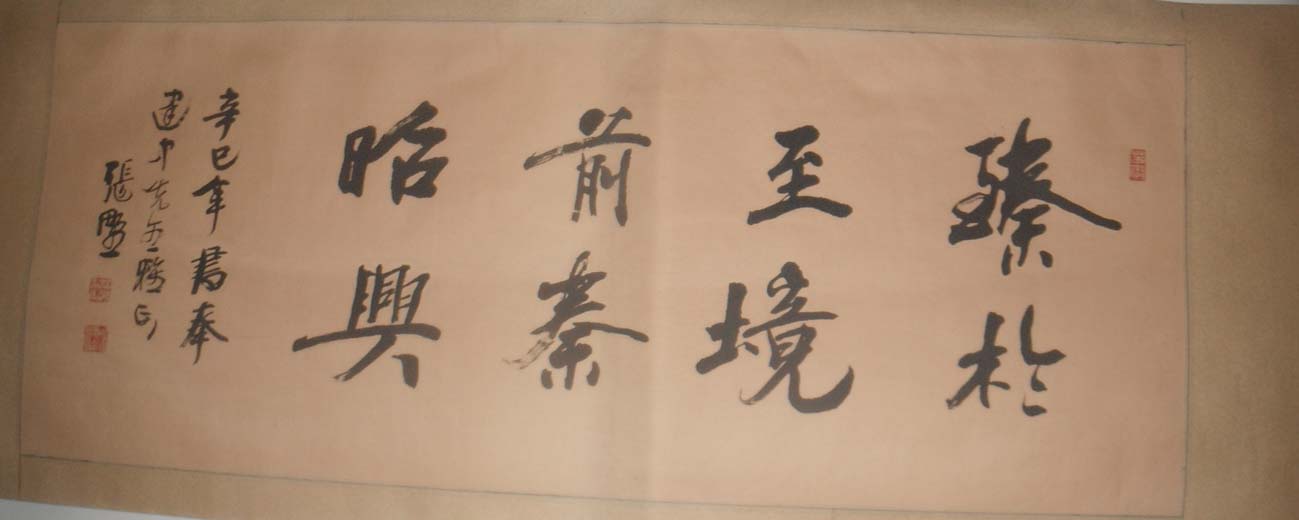 臻於
至境
前秦
昭興
辛巳年書奉
建中先生雅正
張